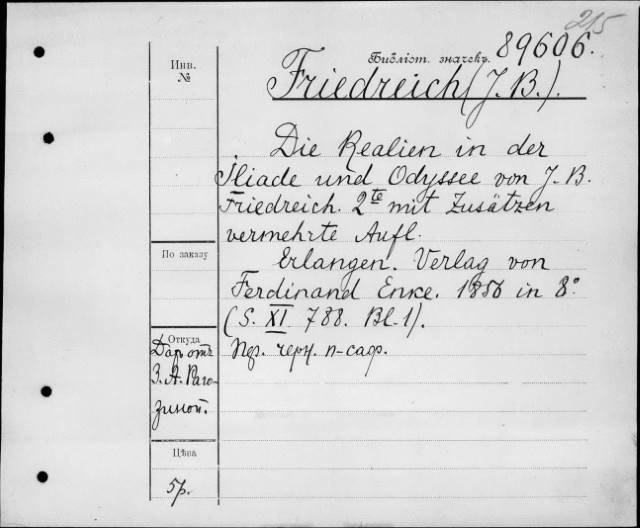 215
Библіот. значекъ 89606.
Инв.
№
Friedreich (J. B.).
Die Realien in der
Iliade und Odyssee von J. B.
Friedreich. 2te mit Zusätzen
vermehrte Aufl.
По заказу
Erlangen. Verlag von
Ferdinand Enke. 1856 in 8°
(S. XI 788. Bl. 1).
Откуда
Даръ отъ
З. А. Раго-
зиной.
черн. п-саф.
Цѣна
5р.